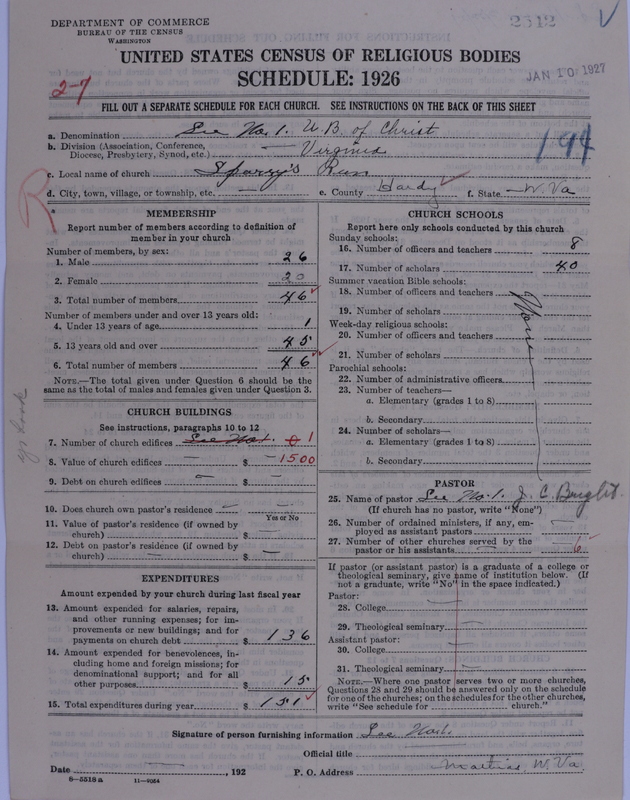 DEPARTMENT OF COMMERCE
BUREAU OF THE CENSUS
WASHINGTON
2312
UNITED STATES CENSUS OF RELIGIOUS BODIES
SCHEDULE: 1926
JAN 10 1927
2-7
FILL OUT A SEPARATE SCHEDULE FOR EACH CHURCH. SEE INSTRUCTIONS ON THE BACK OF THIS SHEET
a. Denomination See No. 1. U B. of Christ
b. Division (Association, Conference, Diocese, Presbytery, Synod, etc.) — Virginia
194
c. Local name of church Run
d. City, town, village, or township, etc. — e. County Hardy f. State W. Va
MEMBERSHIP
Report number of members according to definition of member in your church
Number of members, by sex:
1. Male 26
2. Female 20
3. Total number of members 46
Number of members under and over 13 years old:
4. Under 13 years of age 1
5. 13 years old and over 45
6. Total number of members 46
NOTE.—The total given under Question 6 should be the same as the total of males and females given under Question 3.
CHURCH BUILDINGS
See instructions, paragraphs 10 to 12
7. Number of church edifices See No 1. 1
8. Value of church edifices $ 1500
9. Debt on church edifices — $ —
10. Does church own pastor's residence —
Yes or No
11. Value of pastor's residence (if owned by church) $ —
12. Debt on pastor's residence (if owned by church) — $ —
EXPENDITURES
Amount expended by your church during last fiscal year
13. Amount expended for salaries, repairs, and other running expenses; for improvements or new buildings; and for payments on church debt $ 136
14. Amount expended for benevolences, including home and foreign missions; for denominational support; and for all other purposes $ 15
15. Total expenditures during year $ 151
CHURCH SCHOOLS
Report here only schools conducted by this church
Sunday schools:
16. Number of officers and teachers 8
17. Number of scholars 40
Summer vacation Bible schools:
18. Number of officers and teachers None
19. Number of scholars
Week-day religious schools:
20. Number of officers and teachers
21. Number of scholars
Parochial schools:
22. Number of administrative officers
23. Number of teachers—
a. Elementary (grades 1 to 8)
b. Secondary
24. Number of scholars—
a. Elementary (grades 1 to 8)
b. Secondary
PASTOR
25. Name of pastor See No. 1. J. C.
(If church has no pastor, write "None")
26. Number of ordained ministers, if any, employed as assistant pastors —
27. Number of other churches served by the pastor or his assistants — 6
If pastor (or assistant pastor) is a graduate of a college or theological seminary, give name of institution below. (If not a graduate, write "No" in the space indicated.)
Pastor:
28. College —
29. Theological seminary —
Assistant pastor:
30. College —
31. Theological seminary —
NOTE.—Where one pastor serves two or more churches, Questions 28 and 29 should be answered only on the schedule for one of the churches; on the schedules for the other churches, write "See schedule for ........ church."
Signature of person furnishing information See No 1.
Official title —
Date — , 192 P. O. Address Mathias, W. Va.
8-5518a 11-9064